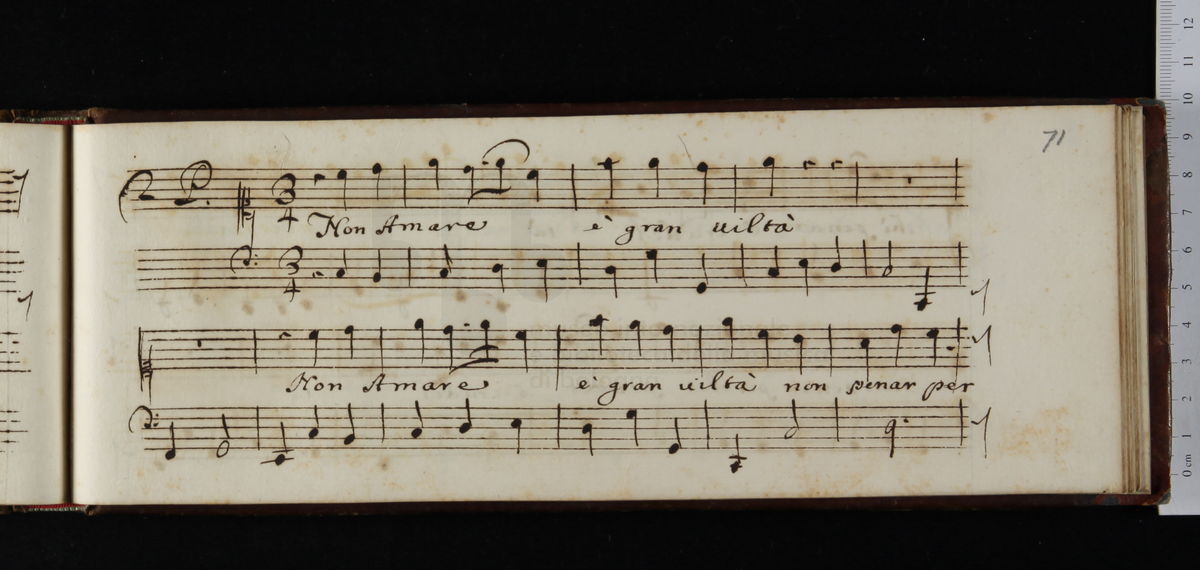 71
2 P.
3
4
Non Amare è gran uiltà
3
4
Non Amare è gran uiltà non penar per
12
11
10
9
8
7
6
5
4
3
2
1
0 cm